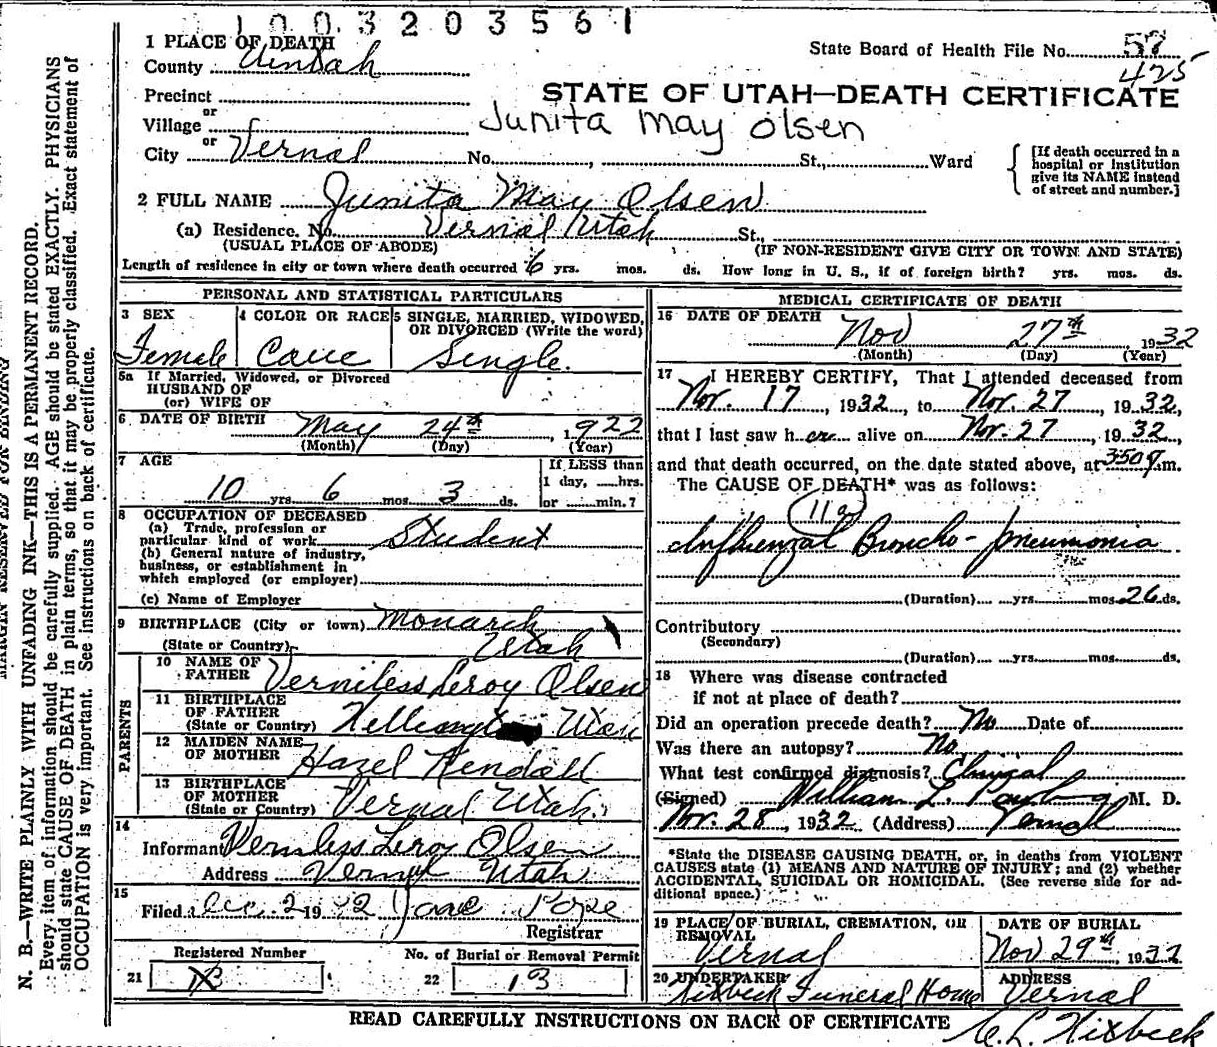 1003203561
1 PLACE OF DEATH
County Uintah
State Board of Health File No. 57
425
Precinct
or
Village
or
City Vernal No. , St., Ward
STATE OF UTAH—DEATH CERTIFICATE
Junita May Olsen
[If death occurred in a
hospital or institution
give its NAME instead
of street and number.]
2 FULL NAME Junita May Olsen
(a) Residence. No. Vernal Utah St.,
(USUAL PLACE OF ABODE) (IF NON-RESIDENT GIVE CITY OR TOWN AND STATE)
Length of residence in city or town where death occurred 6 yrs. mos. ds. How long in U. S., if of foreign birth? yrs. mos. ds.
PERSONAL AND STATISTICAL PARTICULARS
3 SEX
Female
4 COLOR OR RACE
Cauc
5 SINGLE, MARRIED, WIDOWED,
OR DIVORCED (Write the word)
Single.
5a If Married, Widowed, or Divorced
HUSBAND OF
(or) WIFE OF
6 DATE OF BIRTH May 24th, 1922
(Month) (Day) (Year)
7 AGE
10 yrs. 6 mos. 3 ds.
If LESS than
1 day, hrs.
or min.?
8 OCCUPATION OF DECEASED
(a) Trade, profession or
particular kind of work Student
(b) General nature of industry,
business, or establishment in
which employed (or employer)
(c) Name of Employer
9 BIRTHPLACE (City or town) Monarch
(State or Country) Utah
PARENTS
10 NAME OF
FATHER Verniless Leroy Olsen
11 BIRTHPLACE
OF FATHER
(State or Country) Utah
12 MAIDEN NAME
OF MOTHER Hazel Kendall
13 BIRTHPLACE
OF MOTHER
(State or Country) Vernal Utah.
14
Informant Verniless Leroy Olsen
Address Vernal Utah
15
Filed Dec. 2 1932 Pope
Registrar
Registered Number
21
No. of Burial or Removal Permit
22 13
MEDICAL CERTIFICATE OF DEATH
16 DATE OF DEATH
Nov 27th, 1932
(Month) (Day) (Year)
17 I HEREBY CERTIFY, That I attended deceased from
Nov. 17, 1932, to Nov. 27, 1932,
that I last saw her alive on Nov. 27, 1932,
and that death occurred, on the date stated above, at 350 P.m.
The CAUSE OF DEATH* was as follows:
11a
Influenzal Broncho-pneumonia
(Duration) yrs. mos. 26 ds.
Contributory
(Secondary)
(Duration) yrs. mos. ds.
18 Where was disease contracted
if not at place of death?
Did an operation precede death? No Date of
Was there an autopsy? No
What test confirmed diagnosis? Clinical
(Signed) William L. M. D.
Nov. 28, 1932 (Address) Vernal
*State the DISEASE CAUSING DEATH, or, in deaths from VIOLENT
CAUSES state (1) MEANS AND NATURE OF INJURY; and (2) whether
ACCIDENTAL, SUICIDAL OR HOMICIDAL. (See reverse side for ad-
ditional space.)
19 PLACE OF BURIAL, CREMATION, OR
REMOVAL
Vernal
DATE OF BURIAL
Nov 29th, 1932
20 UNDERTAKER
Hixbeck Funeral Home
ADDRESS
Vernal
READ CAREFULLY INSTRUCTIONS ON BACK OF CERTIFICATE
C. L. Hixbeck
MARGIN RESERVED FOR BINDING
N. B.—WRITE PLAINLY WITH UNFADING INK—THIS IS A PERMANENT RECORD.
Every item of information should be carefully supplied. AGE should be stated EXACTLY. PHYSICIANS
should state CAUSE OF DEATH in plain terms, so that it may be properly classified. Exact statement of
OCCUPATION is very important. See instructions on back of certificate.